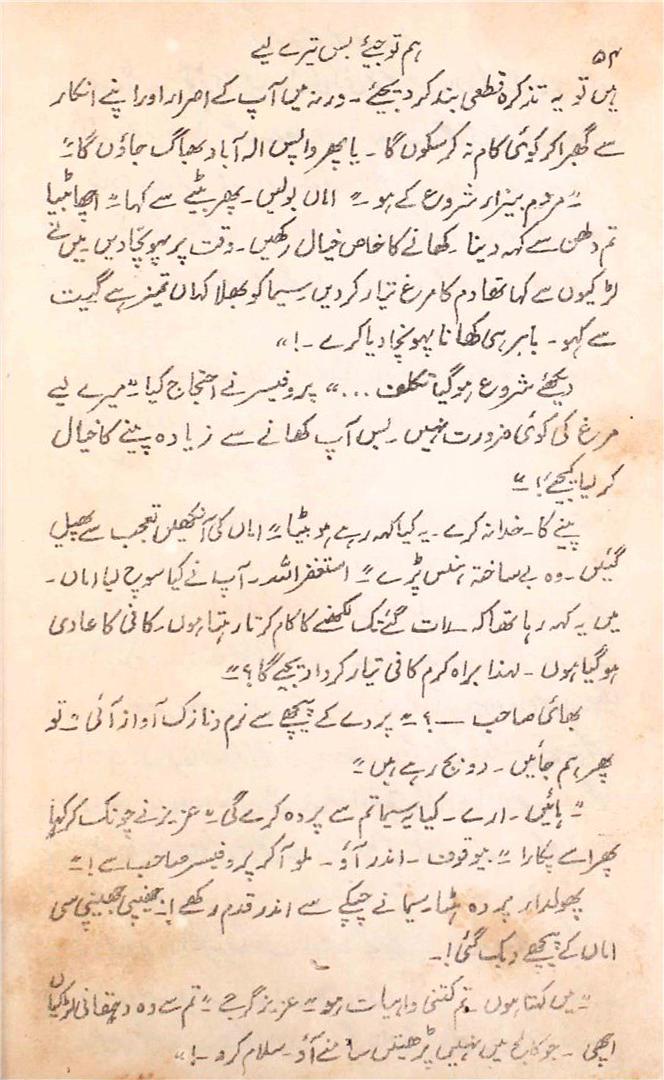 ۵۴ ہم تو جیئے بس تیرے لیے
ہیں تو یہ تذکرہ قطعی بند کر دیجئے ۔ ورنہ میں آپ کے اصرار اور اپنے انکار
سے گھبرا کر کوئی کام نہ کر سکوں گا ۔ یا پھر واپس الہ آباد بھاگ جاؤں گا ۔"
"مردم بیزار شروع کے ہو ۔" اماں بولیں ۔ پھر بیٹے سے کہا ۔" اچھا بیٹا
تم دلھن سے کہہ دینا ۔ کھانے کا خاص خیال رکھیں ۔ وقت پر پہونچا دیں ۔ میں نے
لڑکیوں سے کہا تھا دم کا مرغ تیار کر دیں ۔ سیما کو بھلا کہاں تمیز ہے گیت
سے کہو ۔ باہر ہی کھانا پہونچا دیا کرے ۔!"
دیکھئے شروع ہو گیا تکلف ..." پروفیسر نے احتجاج کیا ۔" میرے لیے
مرغ کی کوئی ضرورت نہیں ۔ بس آپ کھانے سے زیادہ پینے کا خیال
کر لیا کیجئے !۔"
پینے کا ۔ خدا نہ کرے ۔ یہ کیا کہہ رہے ہو بیٹا ۔" اماں کی آنکھیں تعجب سے پھیل
گئیں ۔ وہ بے ساختہ ہنس پڑے ۔" استغفراللہ ۔ آپ نے کیا سوچ لیا اماں ۔
میں یہ کہہ رہا تھا کہ رات گئے تک لکھنے کا کام کرتا رہتا ہوں ۔ کافی کا عادی
ہو گیا ہوں ۔ لہذا براہ کرم کافی تیار کروا دیجئے گا ؟۔"
بھائی صاحب ـــ ؟۔" پردے کے پیچھے سے نرم و نازک آواز آئی ۔" تو
پھر ہم جائیں ۔ دو بج رہے ہیں ۔"
"۔ ہائیں ۔ ارے ۔ کیا یہ سیما تم سے پردہ کرے گی ۔" عزیز نے چونک کر کہا
پھر اسے پکارا ۔" بیوقوف ۔ اندر آؤ ۔ ملو آکر پروفیسر صاحب سے !۔"
پھولدار پردہ ہٹا ۔ سیما نے چپکے سے اندر قدم رکھے ! ۔ جھینپی جھینپی سی
اماں کے پیچھے دبک گئی !۔
"۔ میں کہتا ہوں ۔ تم کتنی واہیات ہو ۔" عزیز گرجے ۔" تم سے وہ دہقانی لڑکیاں
اچھی ۔ جو کالج میں نہیں پڑھتیں سامنے آؤ ۔ سلام کرو ۔!"